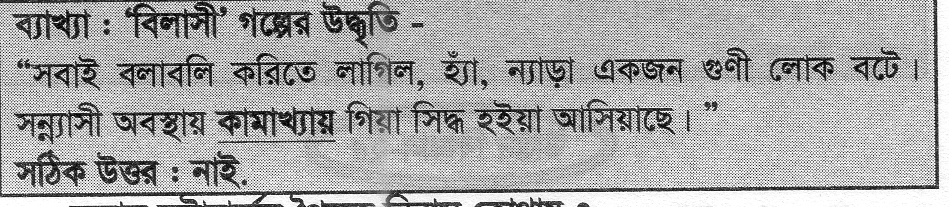 ব্যাখ্যা : ‘বিলাসী’ গল্পের উদ্ধৃতি –
“সবাই বলাবলি করিতে লাগিল, হ্যাঁ, ন্যাড়া একজন গুণী লোক বটে ।
সন্ন্যাসী অবস্থায় কামাখ্যায় গিয়া সিদ্ধ হইয়া আসিয়াছে। ”
সঠিক উত্তর : নাই.